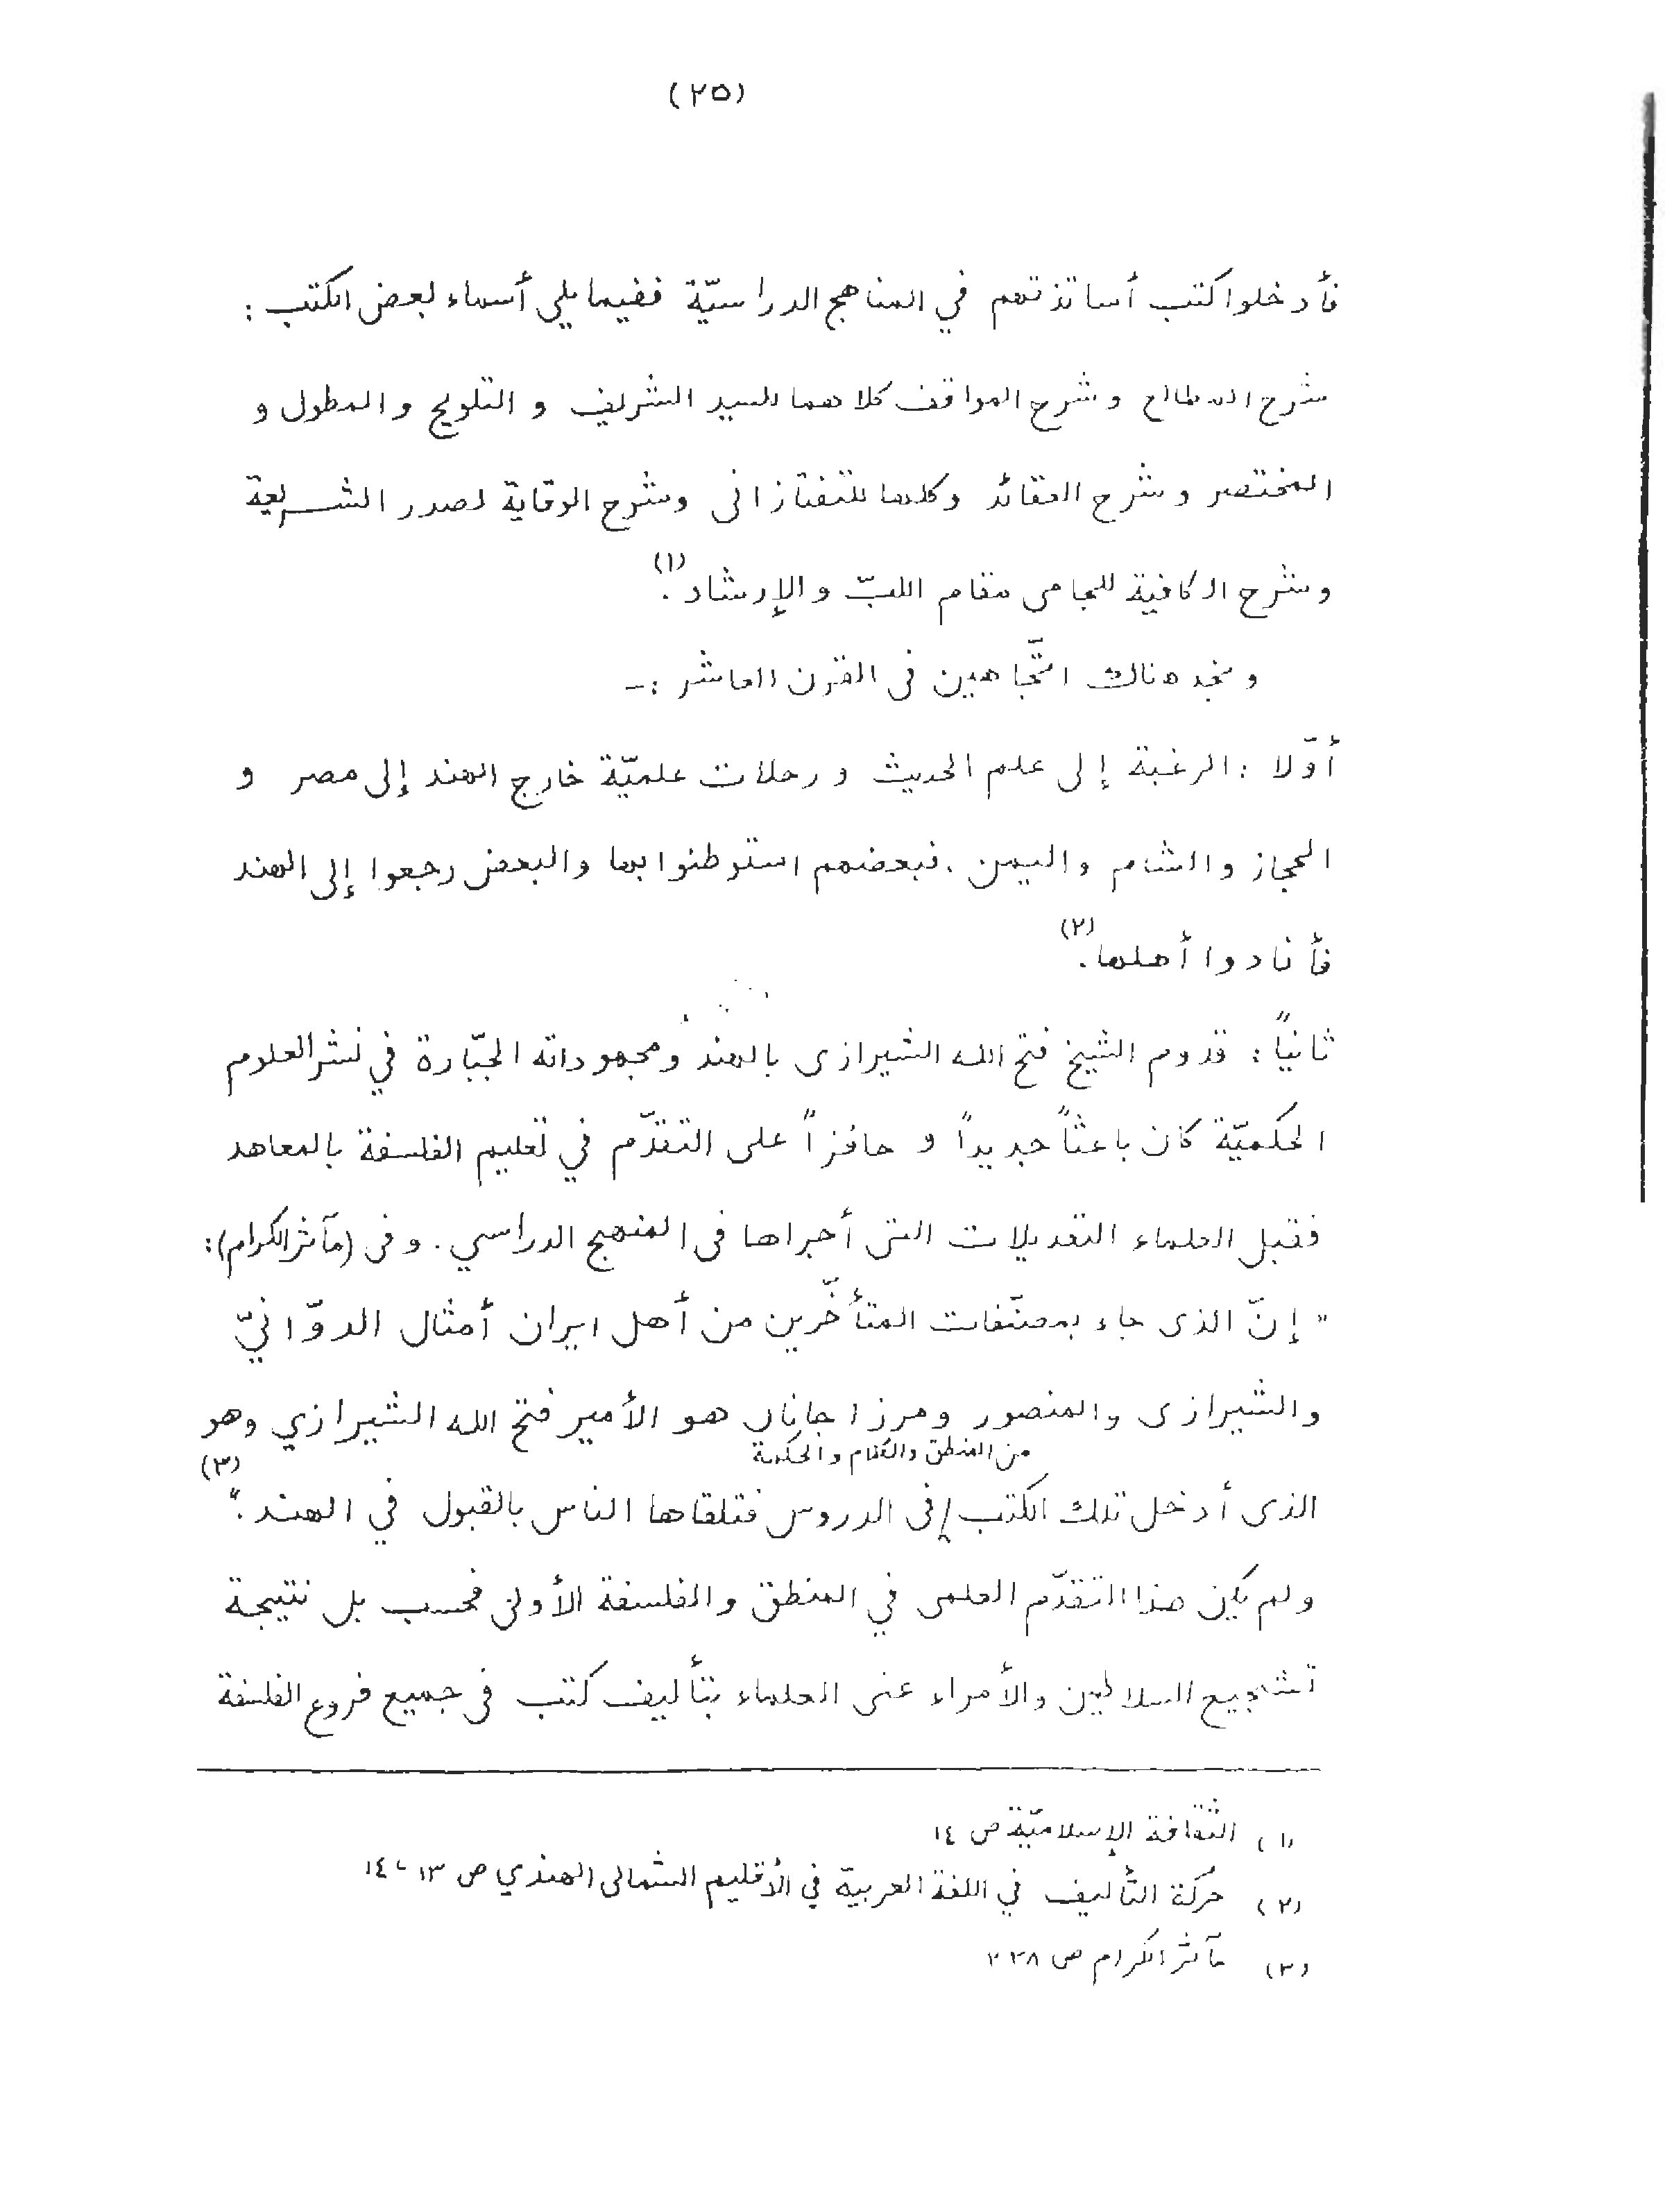 (٢٥)
فأدخلوا كتب أساتذتهم في المناهج الدراسيّة ففيما يلي أسماء لبعض الكتب :
شرح المطالع وشرح المواقف كلاهما للسيد الشريف و التلويح والمطول و
المختصر وشرح العقائد وكلها للتفتازانى وشرح الوقاية لصدر الشريعة
وشرح الكافية للجامى مقام اللبّ والإرشاد . (١)
ونجد هناك اتّجاهين فى القرن العاشر :-
أوّلا : الرغبة إلى علم الحديث ورحلات علميّة خارج الهند إلى مصر و
الحجاز والشام واليمن . فبعضهم استوطنوا بها والبعض رجعوا إلى الهند
فأفادوا أهلها . (٢)
ثانياً : قدوم الشيخ فتح الله الشيرازى بالهند ومجهوداته الجبّارة في نشر العلوم
الحكميّة كان باعثاً جديداً و حافزاً على التقدّم في تعليم الفلسفة بالمعاهد
فقبل العلماء التعديلات التى أجراها فى المنهج الدراسي . وفى (مآثر الكرام) :
" إنّ الذى جاء بمصنّفات المتأخّرين من أهل ايران أمثال الدوّانيّ
والشيرازى والمنصور ومرزا جانان هو الأمير فتح الله الشيرازي وهو
من المنطق والكلام والحكمة
الذى أدخل تلك الكتب فى الدروس فتلقاها الناس بالقبول في الهند . " (٣)
ولم يكن هذا التقدّم العلمى في المنطق والفلسفة الأولى فحسب بل نتيجة
تشجيع السلاطين والأمراء عنى العلماء بتأليف كتب فى جميع فروع الفلسفة
(١) الثقافة الإسلاميّة ص ١٤
(٢) حركة التأليف في اللغة العربيّة في الأقليم الشمالى الهندي ص ١٣ - ١٤
(٣) مآثر الكرام ص ٢٣٨